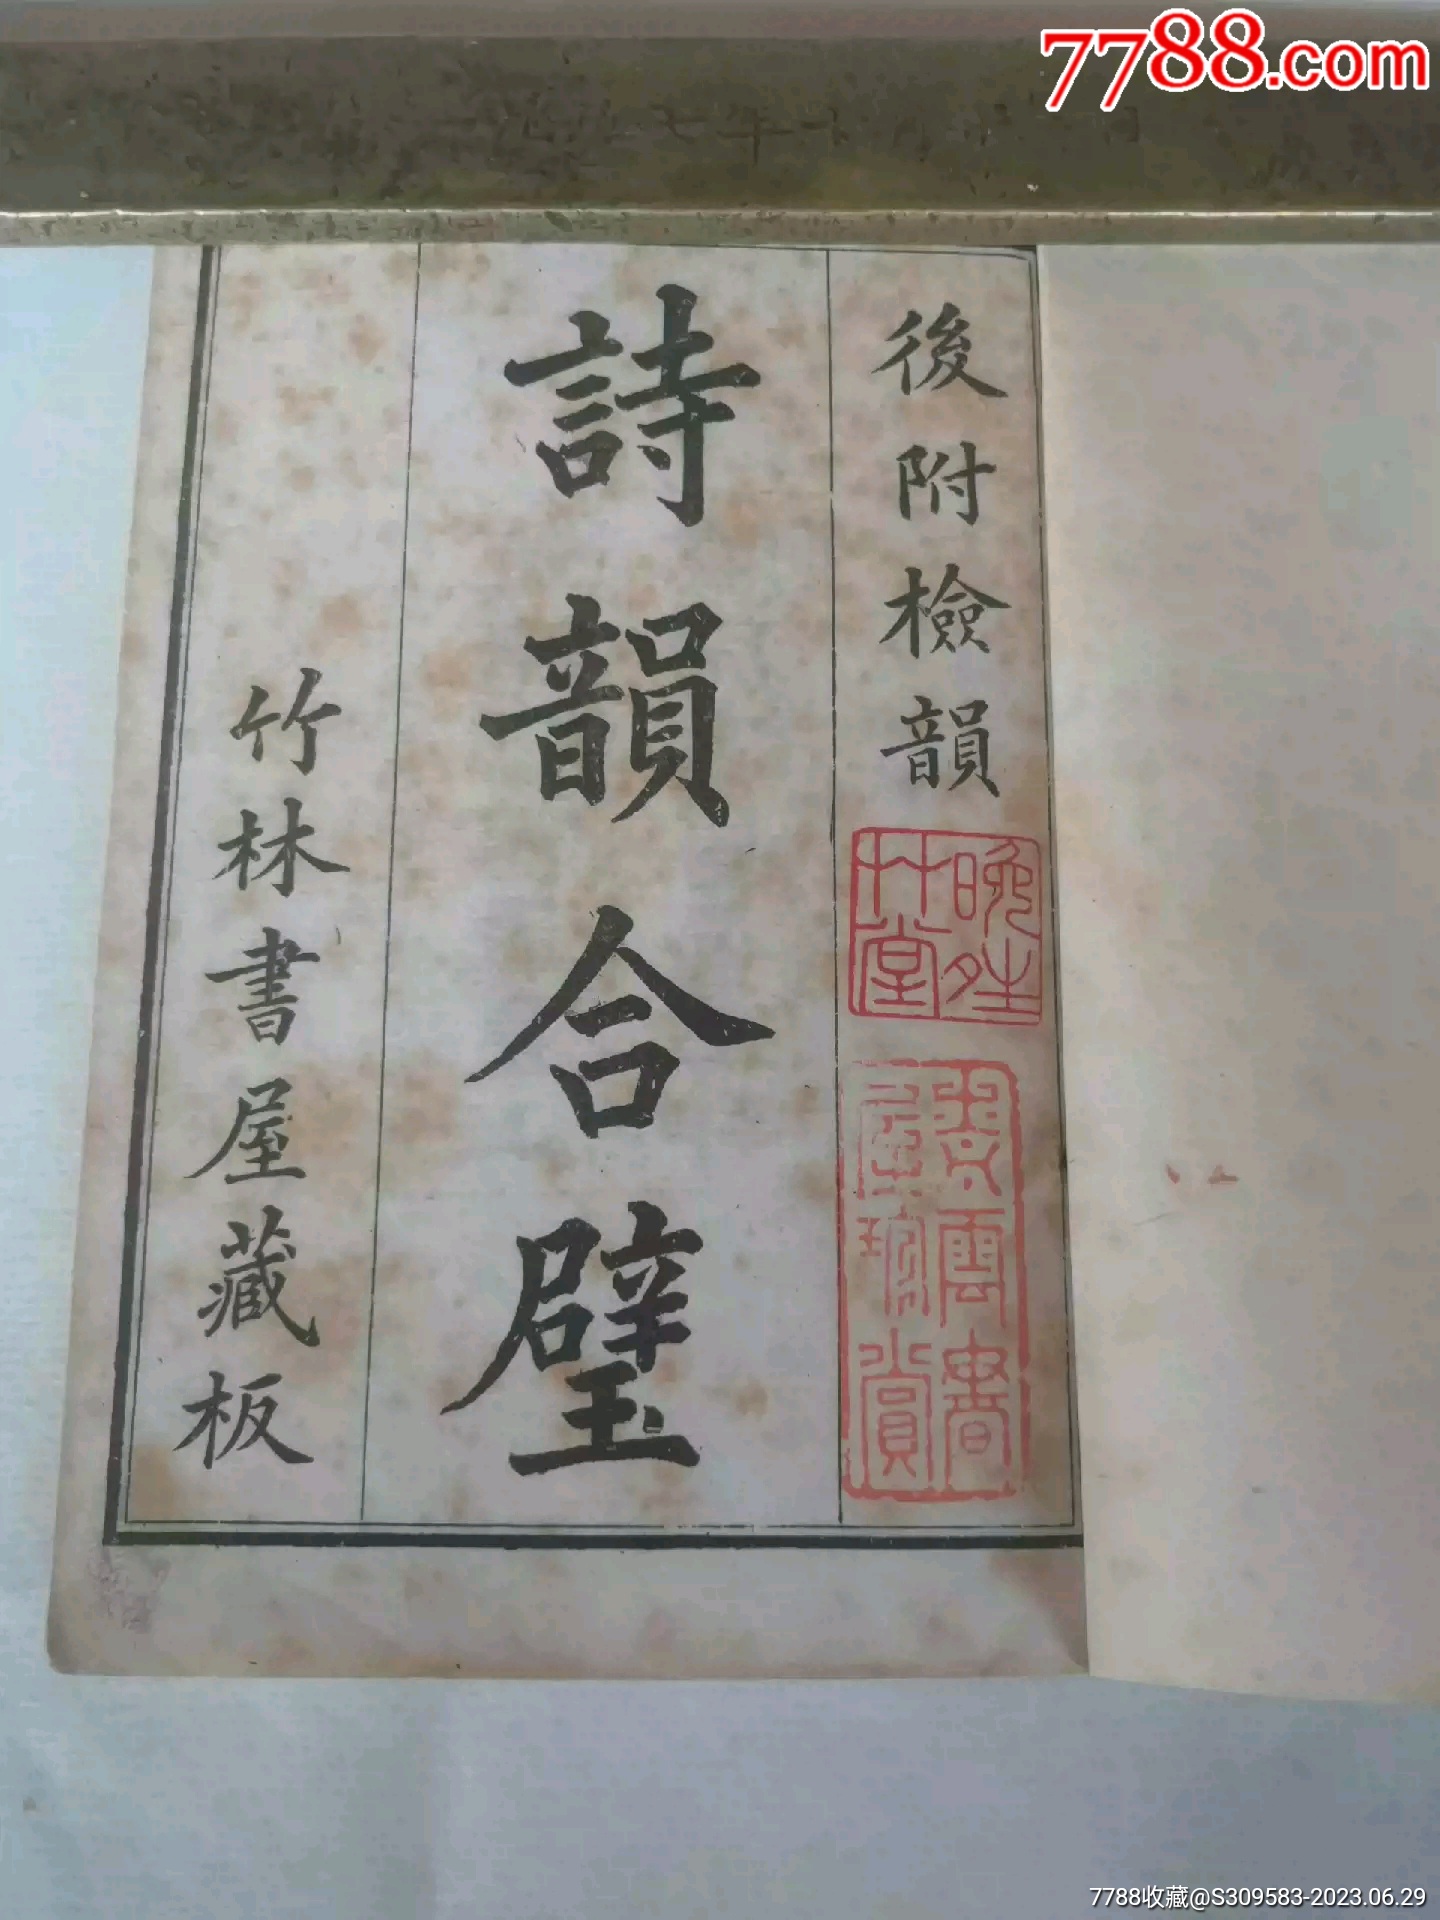 7788.com
後附檢韻
詩韻合璧
竹林書屋藏板
7788收藏@S309583-2023.06.29